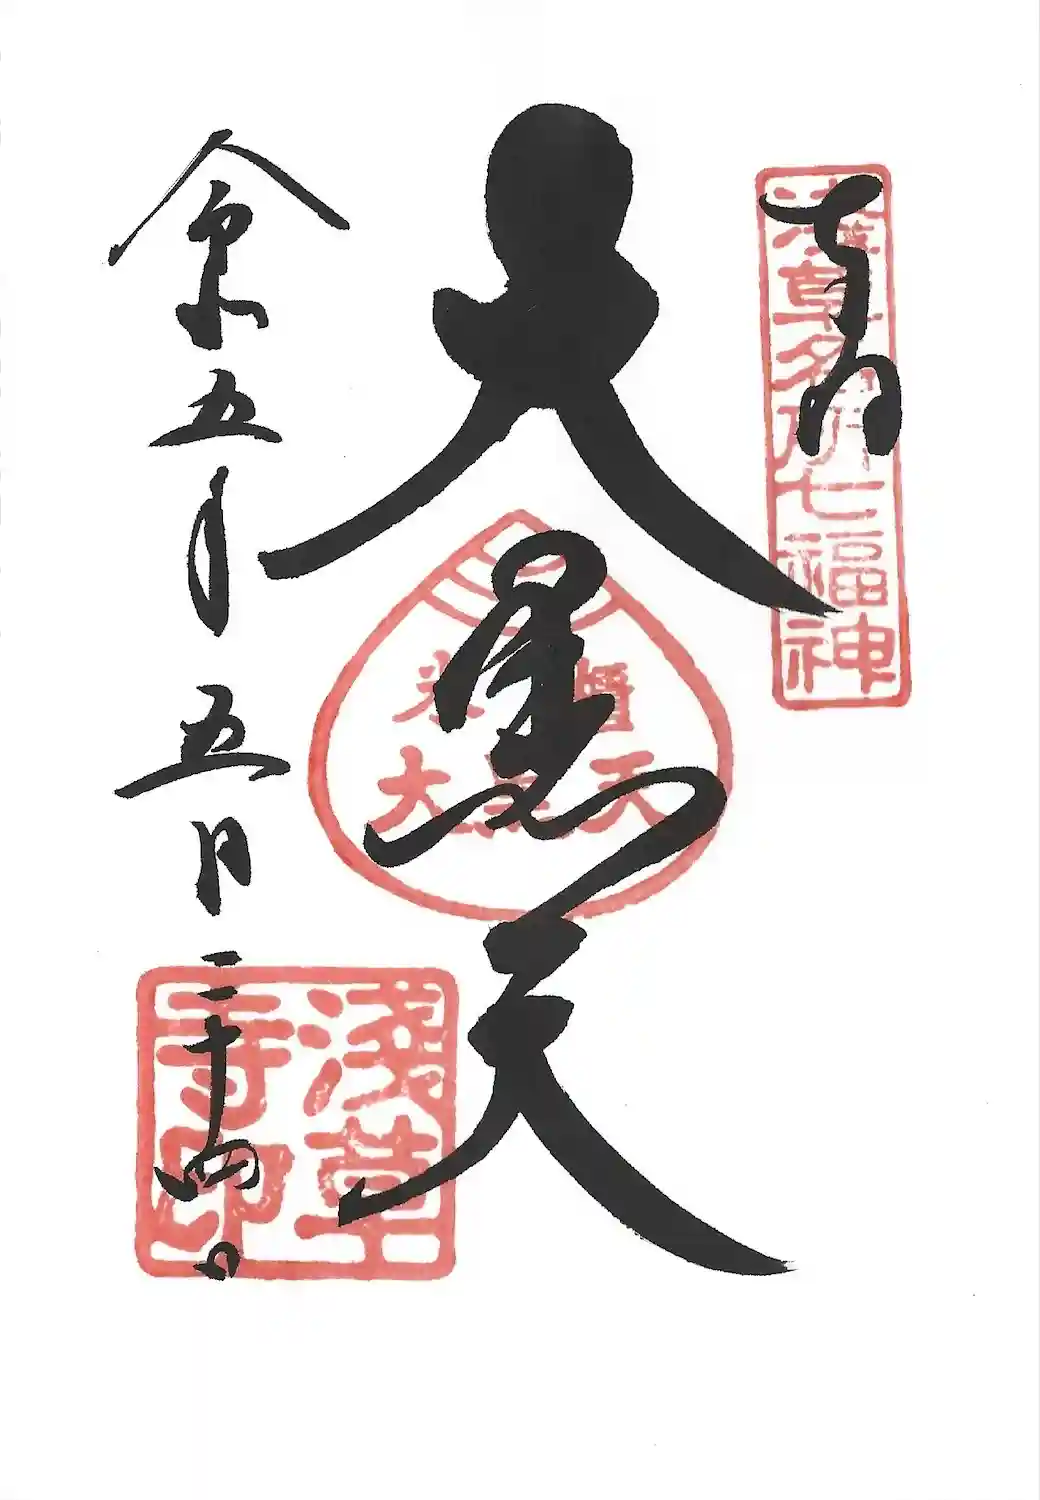 奉拝
浅草名所七福神
大黒天
米櫃
大黒天
令和五年五月二十四日
淺草
寺印